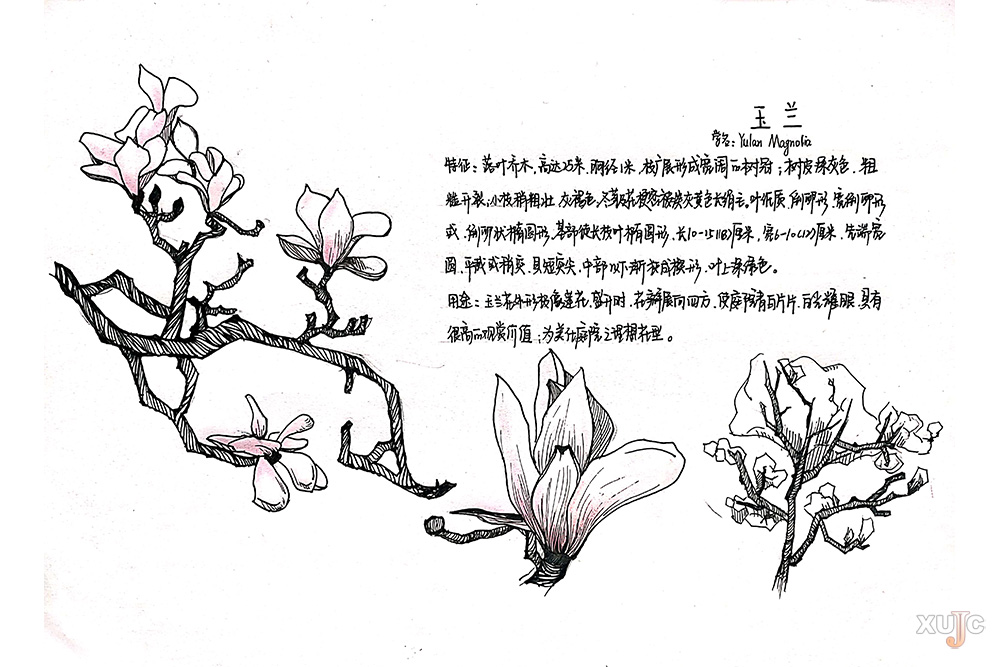 玉兰
学名：Yulan Magnolia
特征：落叶乔木，高达25米，胸径1米，枝广展形成宽阔的树冠；树皮深灰色，粗
糙开裂；小枝稍粗壮，灰褐色；冬芽及花梗密被淡灰黄色长绢毛。叶纸质，倒卵形、宽倒卵形
或、倒卵状椭圆形，基部徒长枝叶椭圆形，长10-15(18)厘米，宽6-10(12)厘米，先端宽
圆、平截或稍突，具短突尖，中部以下渐狭成楔形，叶上深绿色。
用途：玉兰花外形极像莲花，盛开时，花瓣展向四方，使庭院青白片片，白光耀眼，具有
很高的观赏价值；为美化庭院之理想花型。
XUJC